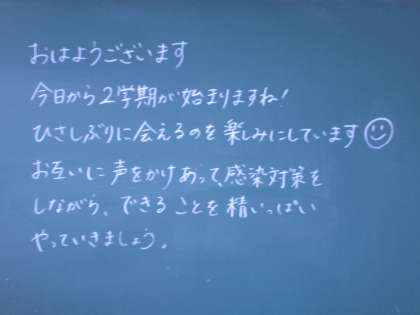 おはようございます
今日から2学期が始まりますね!
ひさしぶりに会えるのを楽しみにしています
お互いに声をかけあって、感染対策を
しながら、できることを精いっぱい
やっていきましょう。